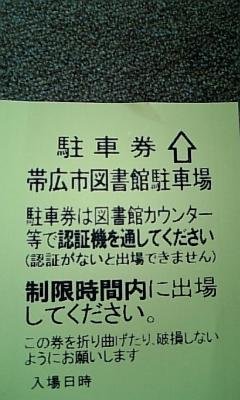 駐車券⇧
帯広市図書館駐車場
駐車券は図書館カウンター
等で認証機を通してください
(認証がないと出場できません)
制限時間内に出場
してください。
この券を折り曲げたり、破損しない
ようにお願いします
入場日時